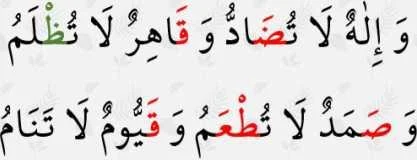 وَ إِلٰهٌ لَا تُضَادُّ وَ قَاهِرٌ لَا تُظْلَمُ
وَ صَمَدٌ لَا تُطْعَمُ وَ قَيُّومٌ لَا تَنَامُ